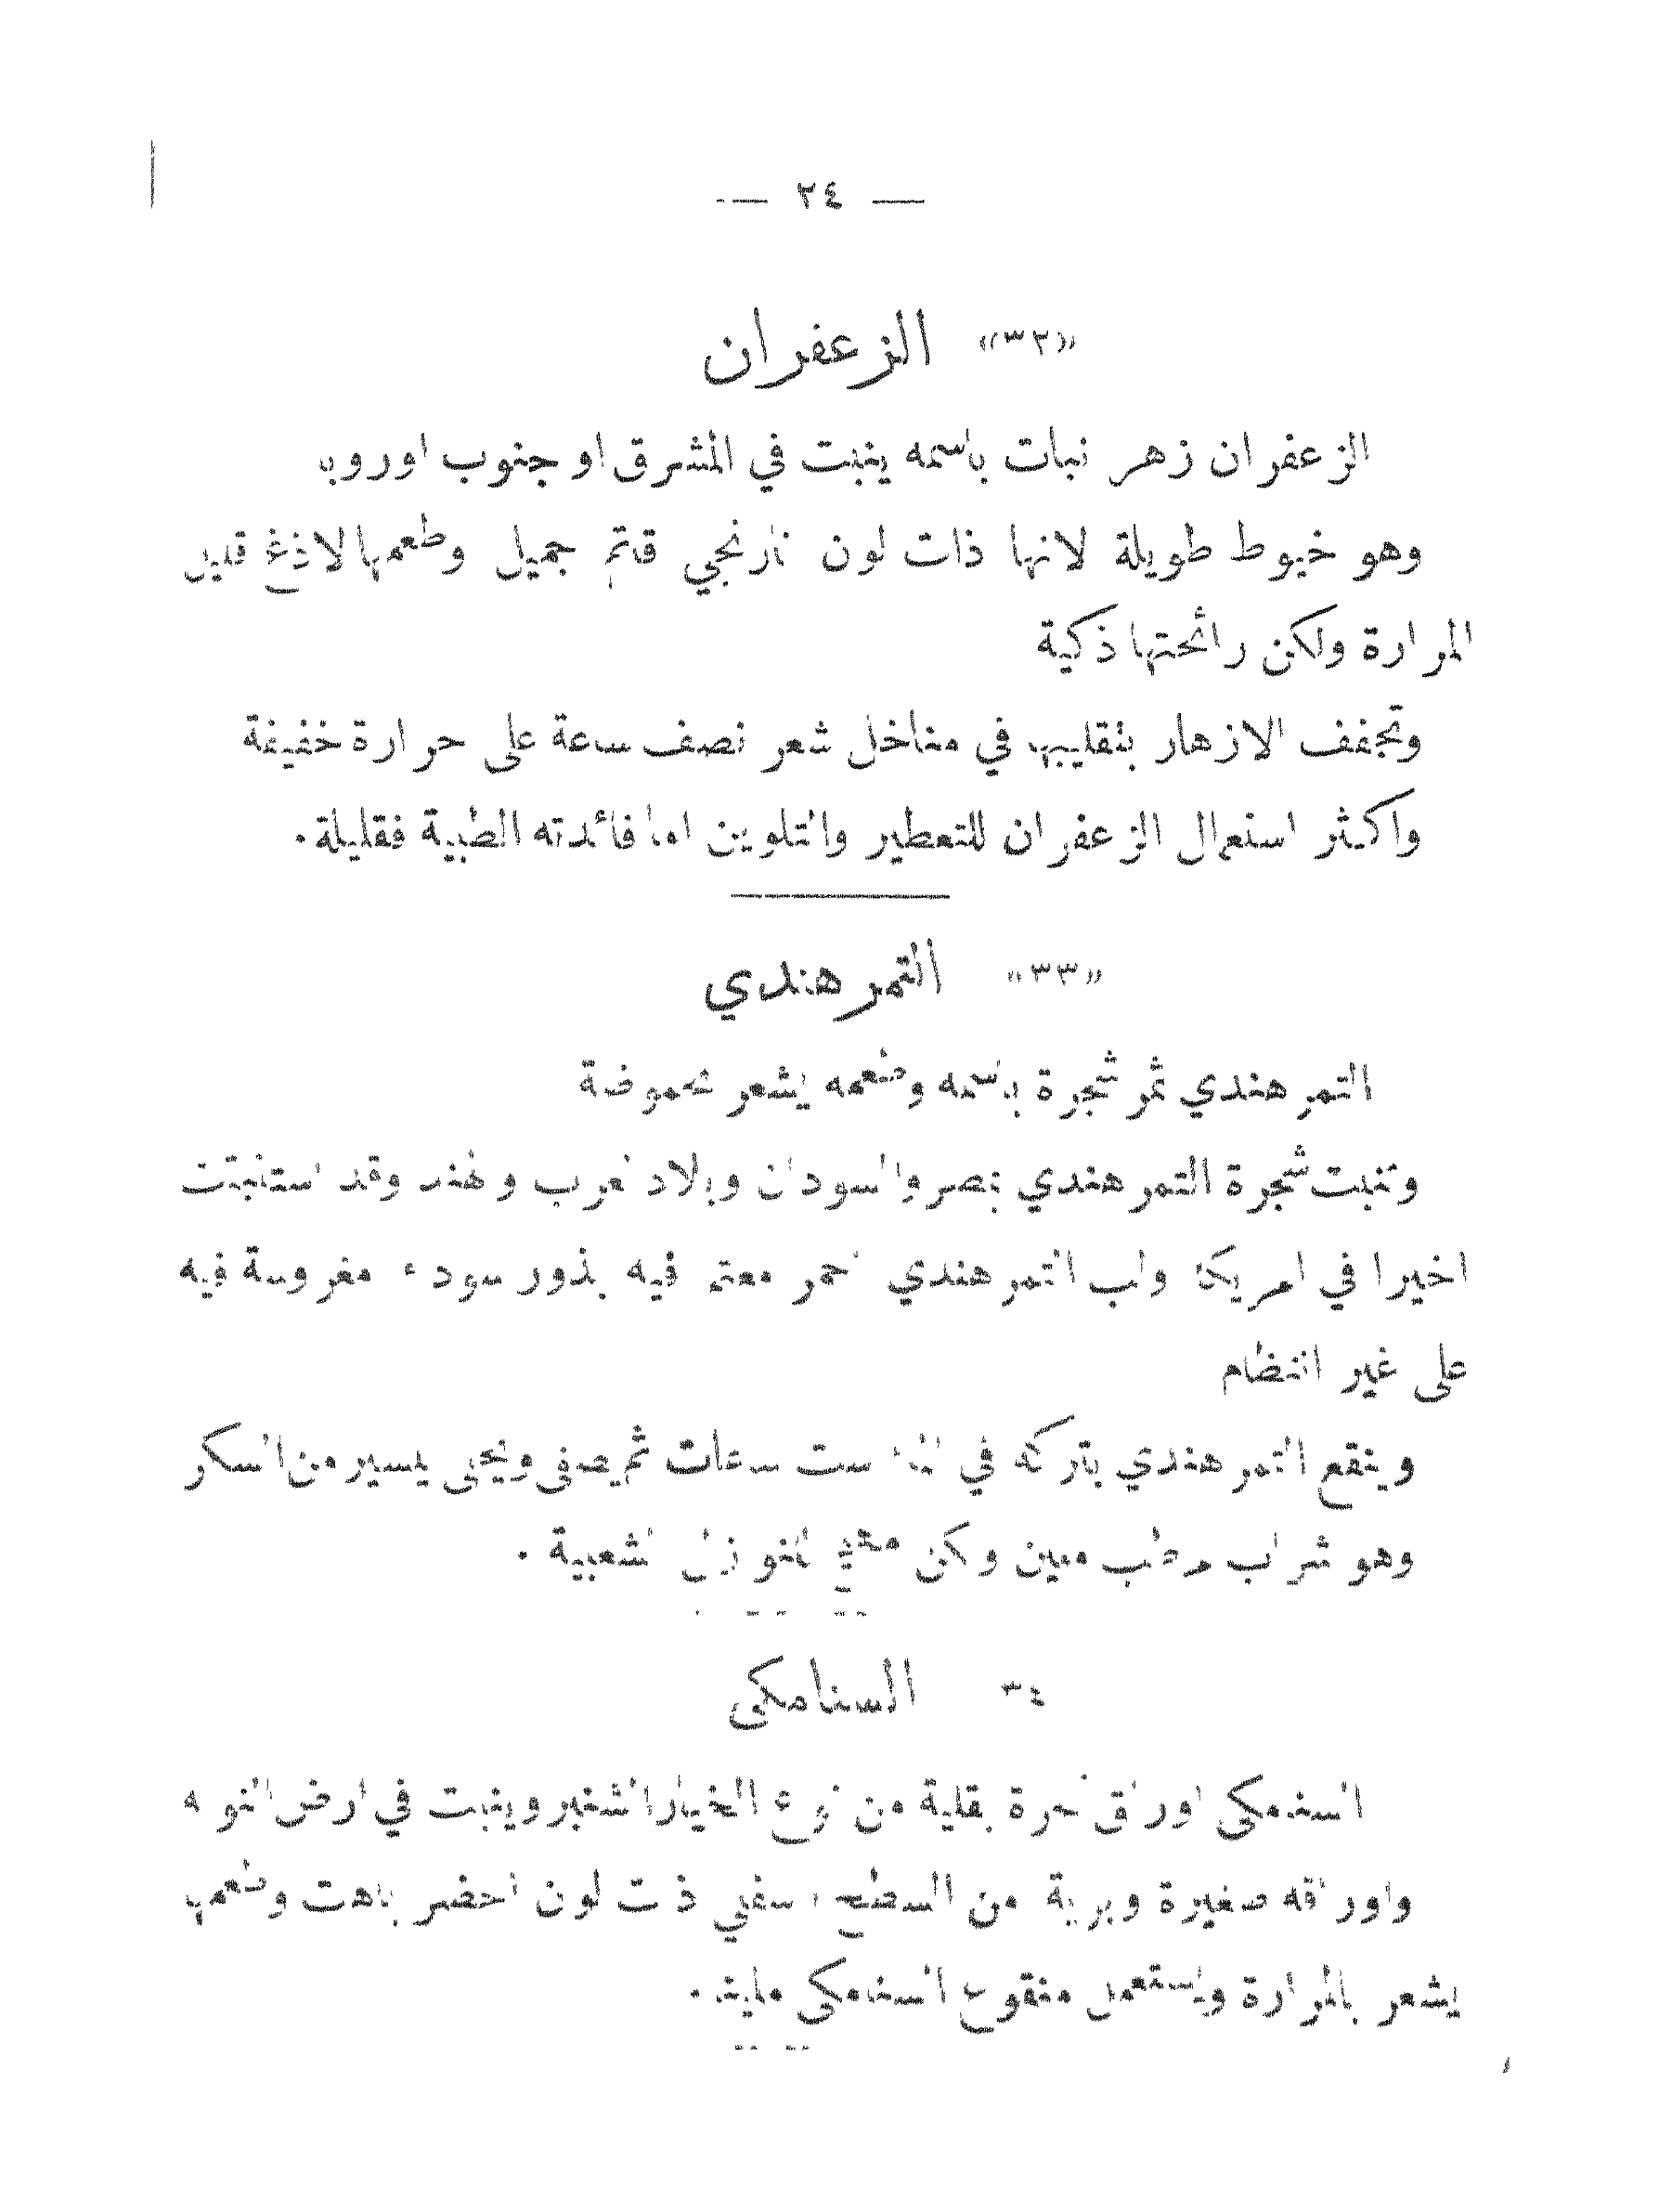 — ٢٤ —
«٣٢» الزعفران
الزعفران زهر نبات باسمه ينبت في المشرق او جنوب اوروبا
وهو خيوط طويلة لانها ذات لون نارنجي قاتم جميل وطعمها لاذع قليل
المرارة ولكن رائحتها ذكية
وتجفف الازهار بتقليبها في مناخل شعر نصف ساعة على حرارة خفيفة
واكثر استعمال الزعفران للتعطير والتلوين اما فائدته الطبية فقليلة.
«٣٣» التمر هندي
التمر هندي ثمر شجرة باسمه وطعمه يشعر بحموضة
وتنبت شجرة التمر هندي بمصر والسودان وبلاد العرب والهند وقد استنبتت
اخيرا في امريكا ولب التمر هندي احمر معتم فيه بذور سوداء مغروسة فيه
على غير انتظام
وينقع التمر هندي بتركه في الماء ست ساعات ثم يصفى ويحلى بيسير من السكر
وهو شراب مرطب ملين ولكن مهيج للنوازل الشعبية .
٣٤ السنامكى
السنامكى اوراق شجرة بقلية من نوع الخيار الشنبر وينبت في ارض النوبه
واوراقه صغيرة وبرية من السطح السفلي ذات لون اخضر باهت وطعمها
يشعر بالمرارة ويستعمل منقوع السنامكى ملينا .